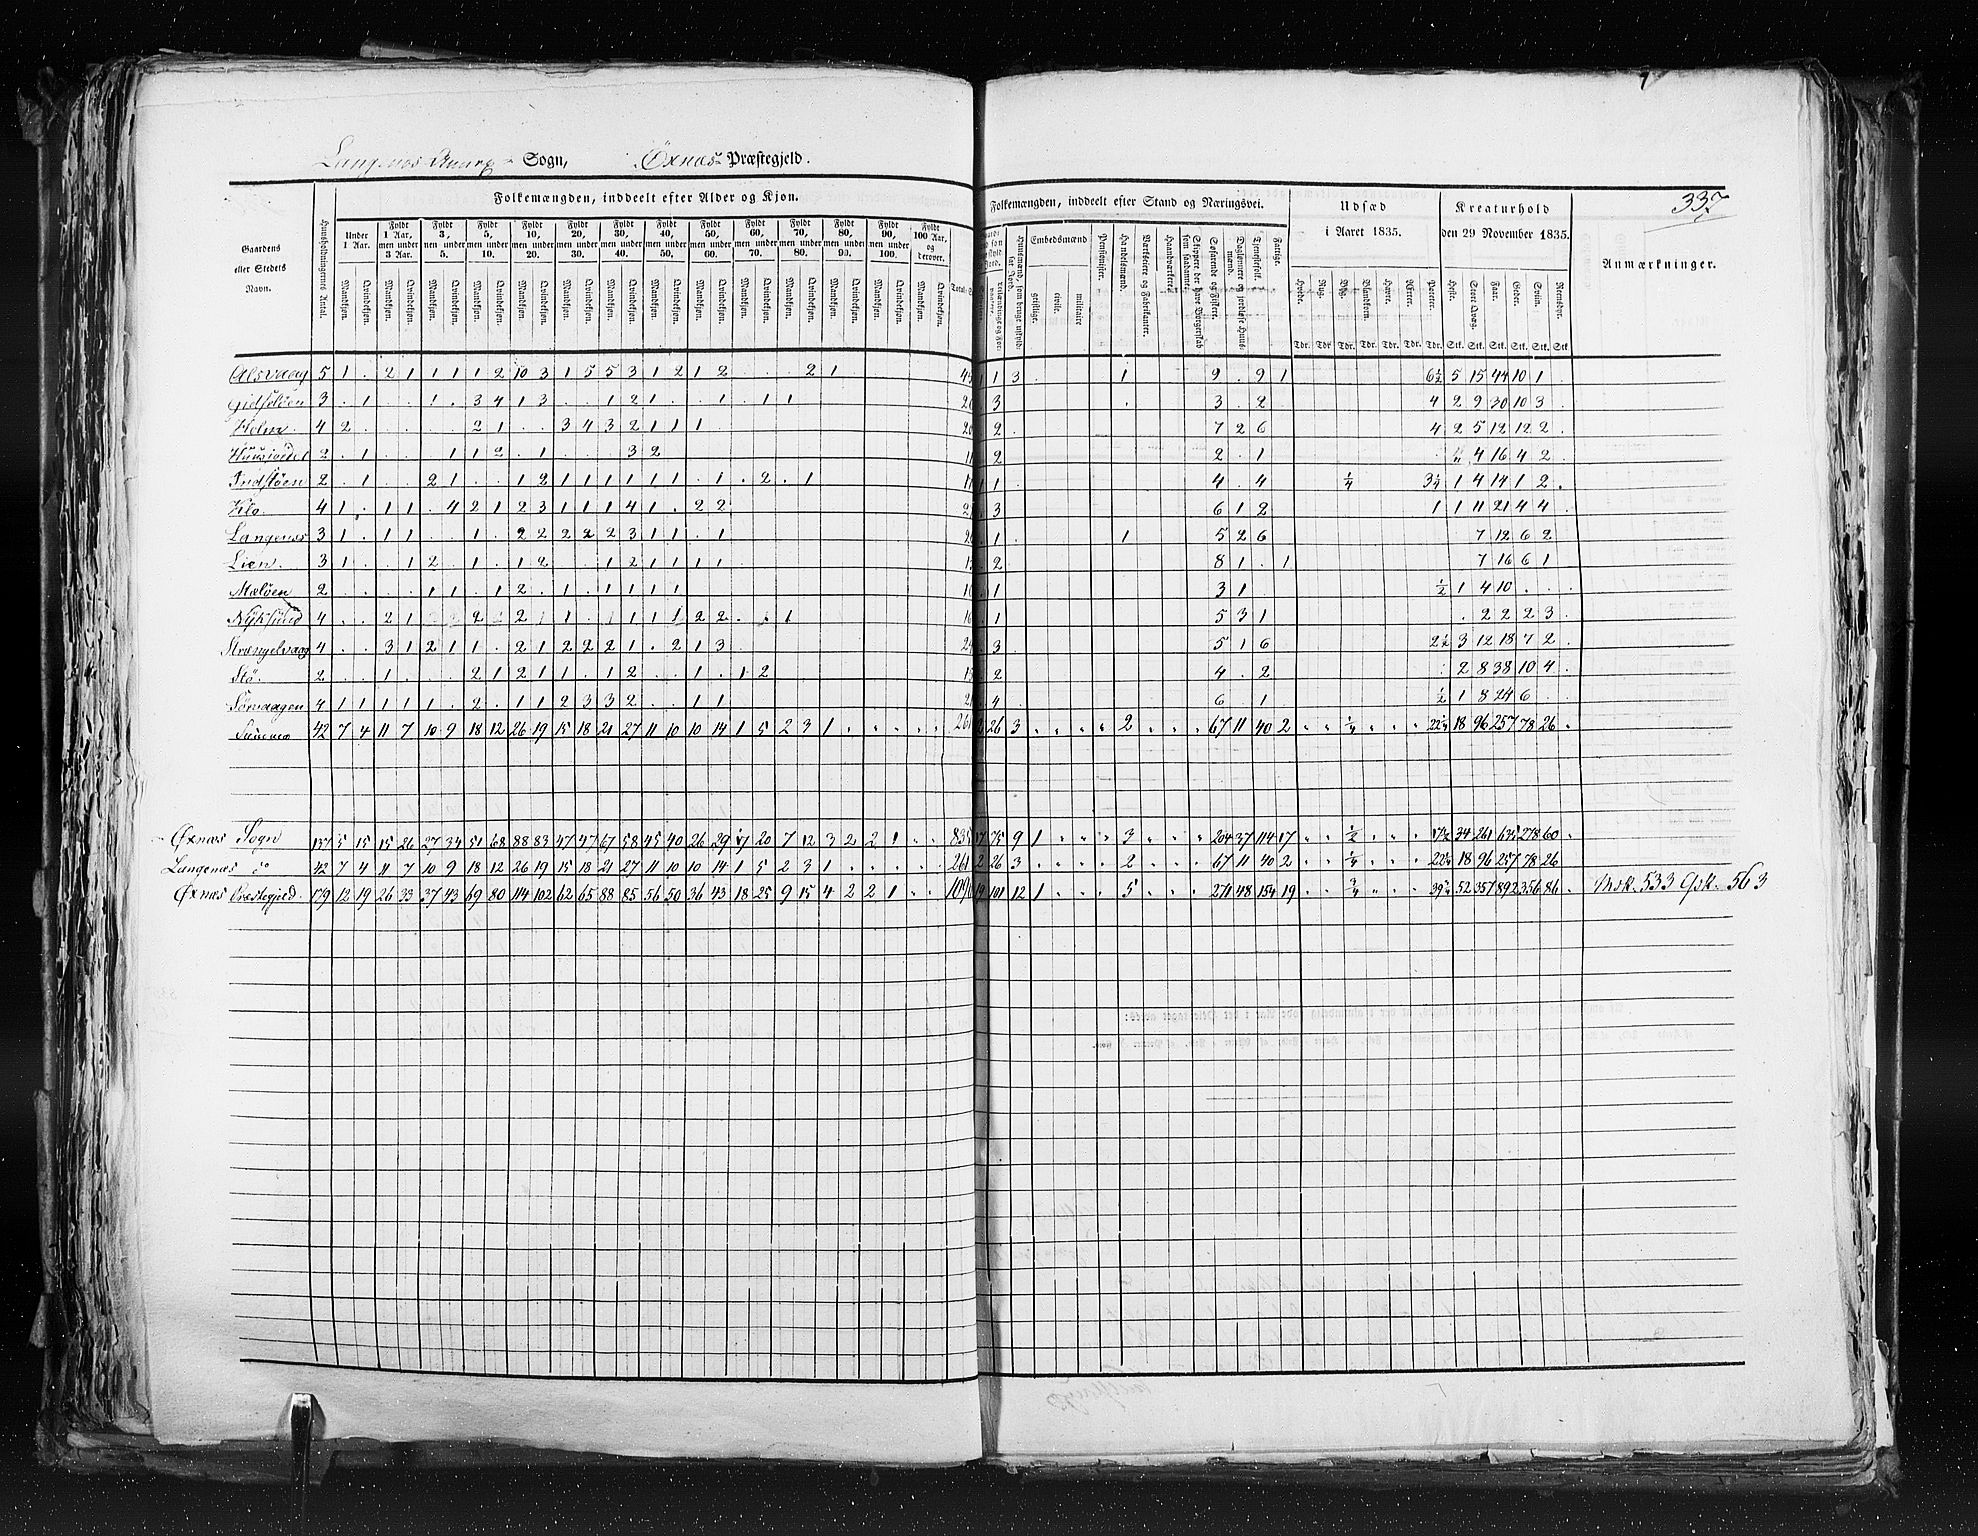 337
Langenæs Sogn, Øxnæs Præstegjeld.
Gaardens eller Stedets Navn.
Huusholdningernes Antal.
Folkemængden, inddeelt efter Alder og Kjøn.
Under 1 Aar. Fyldt 1 Aar, men under 3 Aar. Fyldt 3, men under 5. Fyldt 5, men under 10. Fyldt 10, men under 20. Fyldt 20, men under 30. Fyldt 30, men under 40. Fyldt 40, men under 50. Fyldt 50, men under 60. Fyldt 60, men under 70. Fyldt 70, men under 80. Fyldt 80, men under 90. Fyldt 90, men under 100. Fyldt 100 Aar, og derover.
Mandkjøn. Qvindekjøn.
Folkemængden, inddeelt efter Stand og Næringsvei.
Huusmænd, som bruge udskyldsat Jord. Embedsmænd geistlige. civile. militaire Pensionister. Handelsmænd. Værkseiere og Fabrikanter. Haandværkere. Skippere der have Borgerskab som saadanne. Søfarende og Fiskere. Daglønnere og jordløse Huusmænd. Tjenestefolk. Fattige.
Udsæd i Aaret 1835.
Hvede. Rug. Byg. Blandkorn. Havre. Ærter. Poteter.
Tdr. Tdr. Tdr. Tdr. Tdr. Tdr. Tdr.
Kreaturhold den 29 November 1835.
Heste. Stort Qvæg. Faar. Geder. Sviin. Rensdyr.
Stk. Stk. Stk. Stk. Stk. Stk.
Anmærkninger.
Alsvaag 5 1 . 2 1 1 1 1 2 10 3 1 5 5 3 1 2 1 2 2 1 1 3 1 9 . 9 1 6½ 5 15 44 10 1
Gidsløen 3 . 1 1 . 3 4 1 3 1 2 1 1 . 1 1 3 3 . 2 4 2 9 30 10 3
Holm 4 2 2 1 . . 3 4 3 2 1 1 1 2 7 2 6 4 2 5 12 12 2
2 . 1 1 1 2 . 1 3 2 2 2 . 1 4 16 4 2
Indstøen 2 . 1 2 1 1 2 1 1 1 1 1 1 . 1 . 2 . 1 1 4 . 4 ¼ 3¼ 1 4 14 1 2
Klo 4 1 . 1 1 . 4 2 1 2 3 1 1 1 4 1 . 2 2 3 6 1 2 1 1 11 21 4 4
Langenæs 3 1 . 1 1 1 . 2 2 2 2 2 3 1 1 . 1 1 1 5 2 6 7 12 6 2
Lien 3 1 . . 1 2 . 1 . 1 2 1 2 1 1 1 1 2 8 1 . 1 7 16 6 1
Mæløen 2 1 1 1 . 2 . 1 . 1 1 1 1 1 3 1 ½ 1 4 10
Nyksund 4 . . 2 1 2 2 2 1 1 . 1 1 1 1 2 2 . 1 1 1 5 3 1 . 2 2 2 3
4 . . 3 1 2 1 1 . 2 1 2 2 2 1 . 2 1 3 3 5 1 6 2½ 3 12 18 7 2
Stø 2 . . 1 . 2 1 2 1 1 . 1 2 . . 1 . 1 2 2 4 . 2 2 8 38 10 4
Tørvaagen 4 1 1 1 1 1 . 2 . 1 1 2 3 3 2 . . 1 1 4 6 . 1 ½ 1 8 24 6
Summa 42 7 4 11 7 10 9 18 12 26 19 15 18 21 27 11 10 10 14 1 5 2 3 1 261 2 26 3 2 67 11 40 2 ¼ 22¼ 18 96 257 78 26
Øxnæs Sogn 137 5 15 15 26 27 34 51 68 88 83 47 47 67 58 45 40 26 29 17 20 7 12 3 2 2 1 835 17 75 9 1 3 204 37 114 17 ½ 17½ 34 261 635 278 60
Langenæs do 42 7 4 11 7 10 9 18 12 26 19 15 18 21 27 11 10 10 14 1 5 2 3 1 261 2 26 3 2 67 11 40 2 ¼ 22¼ 18 96 257 78 26
Øxnæs Præstegjeld. 179 12 19 26 33 37 43 69 80 114 102 62 65 88 85 56 50 36 43 18 25 9 15 4 2 2 1 1096 19 101 12 1 5 271 48 154 19 ¾ 39¾ 52 357 892 356 86 Msk. 533 Qsk. 563